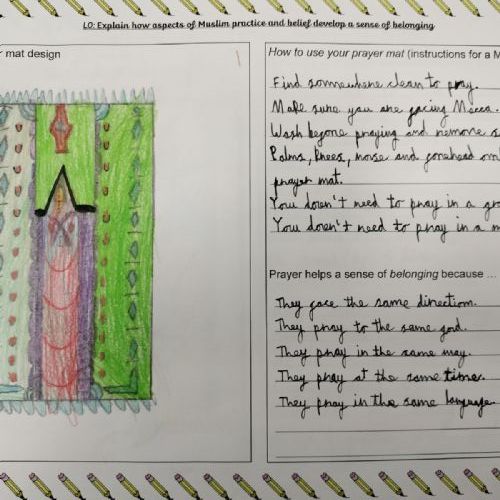 LO: Explain how aspects of Muslim practice and belief develop a sense of belonging
r mat design
How to use your prayer mat (instructions for a M
Find somewhere clean to pray.
Make sure you are facing Mecca
Wash before praying and remove s
Palms, knees, nose and forehead on
prayer mat.
You doren't need to pray in a gro
You doren't need to pray in a m
Prayer helps a sense of belonging because ...
They face the same direction.
They pray to the same god.
They pray in the same way.
They pray at the same time.
They pray in the same language.